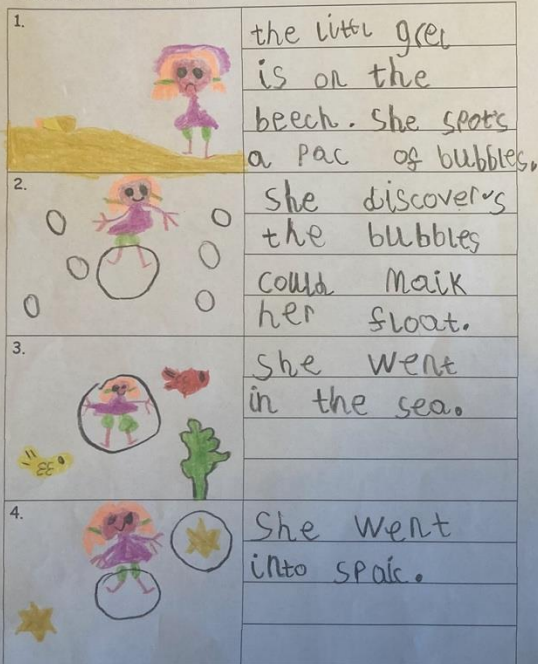 1.
the littl grel
is on the
beech. She spots
a pac of bubbles.
2.
She discovers
the bubbles
could maik
her float.
3.
She went
in the sea.
4.
She went
into spaic.